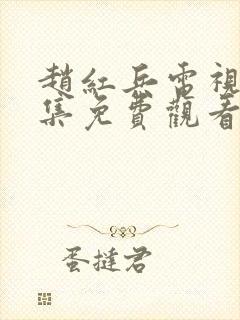 趙紅兵電視
集免費觀看
蛋撻君